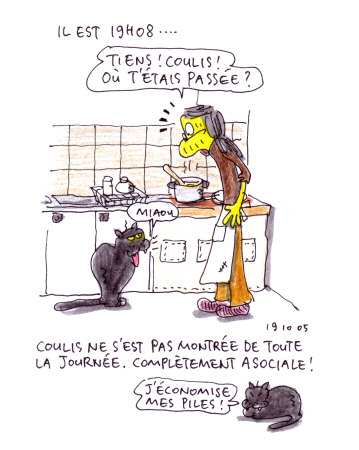 IL EST 19H08....
TIENS! COULIS!
OÙ T'ÉTAIS PASSÉE?
MIAOU
19 10 05
COULIS NE S'EST PAS MONTRÉE DE TOUTE
LA JOURNÉE. COMPLÈTEMENT ASOCIALE!
J'ÉCONOMISE
MES PILES!